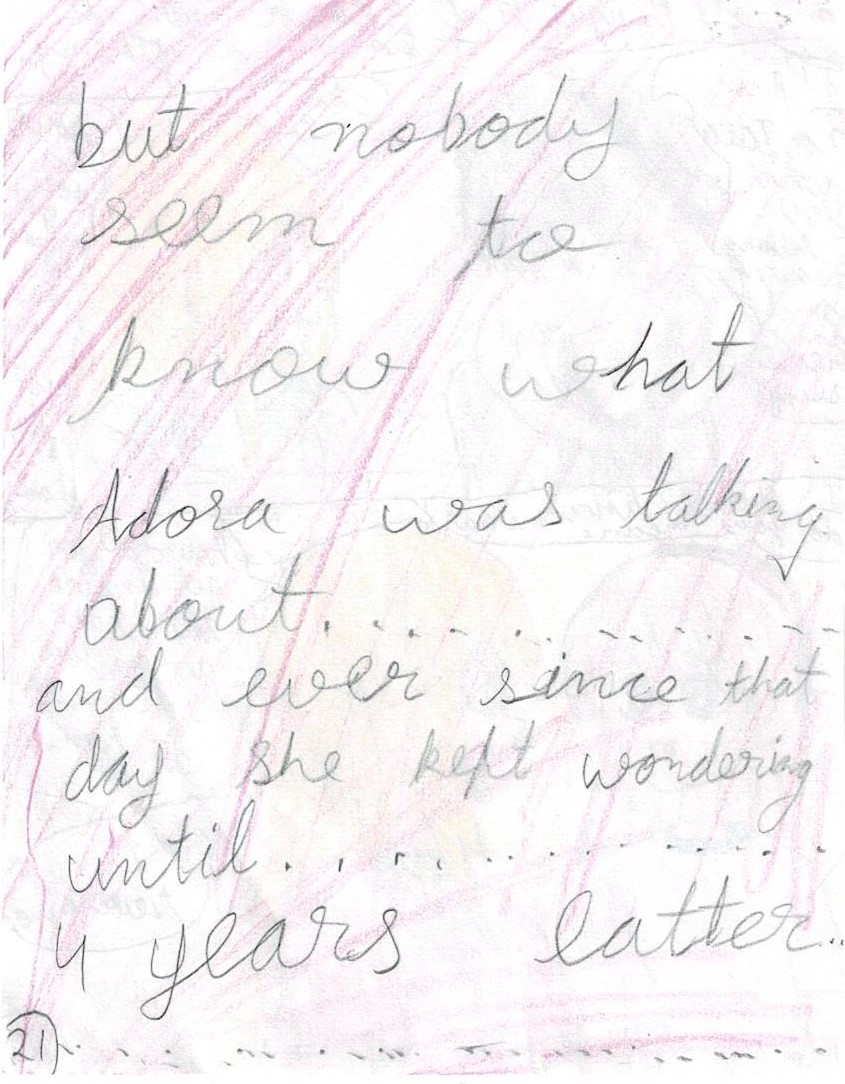 but nobody
seem to
know what
Adora was talking
about..............
and ever since that
day she kept wondering
until..................
4 years latter..
21